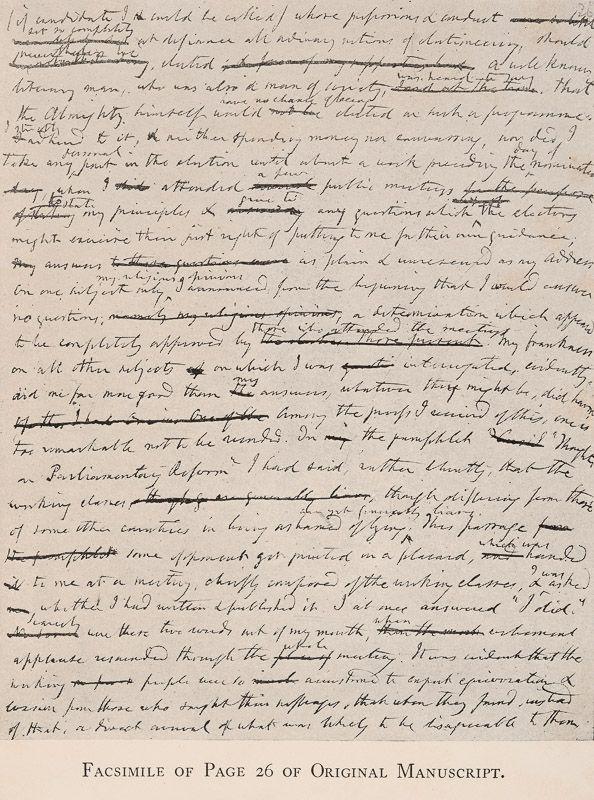 (if candidate I could be called) whose professions & conduct
set so completely
at defiance all ordinary notions of electioneering, should
elected. A well known
was heard to say
literary man, who was also a man of society, that
have no chance of being
the Almighty himself would elected on such a programme.
I strictly
adhered to it, & neither spending money nor canvassing, nor did I
personal day
take any part in the election until about a week preceding the of nomination
a few
when I attended public meetings
to state give to
my principles & any questions which the electors
might exercise their just right of putting to me for their own guidance,
my answers as plain & unreserved as my address
my religious opinions
On one subject only I announced from the beginning that I would answer
no questions; a determination which appeared
those who attended the meetings
to be completely approved by My frankness
on all other subjects on which I was interrogated, evidently
my
did me far more good than answers, whatever they might be, did harm
Among the proofs I received of this, one is
too remarkable not to be recorded. In the pamphlet "Thoughts
on Parliamentary Reform" I had said, rather bluntly, that the
working classes, though differing from those
are yet generally liars
of some other countries in being ashamed of lying, This passage
which was
some opponent got printed in a placard, handed
I was
to me at a meeting, chiefly composed of the working classes, & asked
whether I had written & published it. I at once answered "I did."
Scarcely when
were these two words out of my mouth, vehement
whole
applause resounded through the meeting. It was evident that the
working people were so accustomed to expect equivocation &
evasion from those who sought their suffrages, that when they found, instead
of that, a direct avowal of what was likely to be disagreeable to them
FACSIMILE OF PAGE 26 OF ORIGINAL MANUSCRIPT.